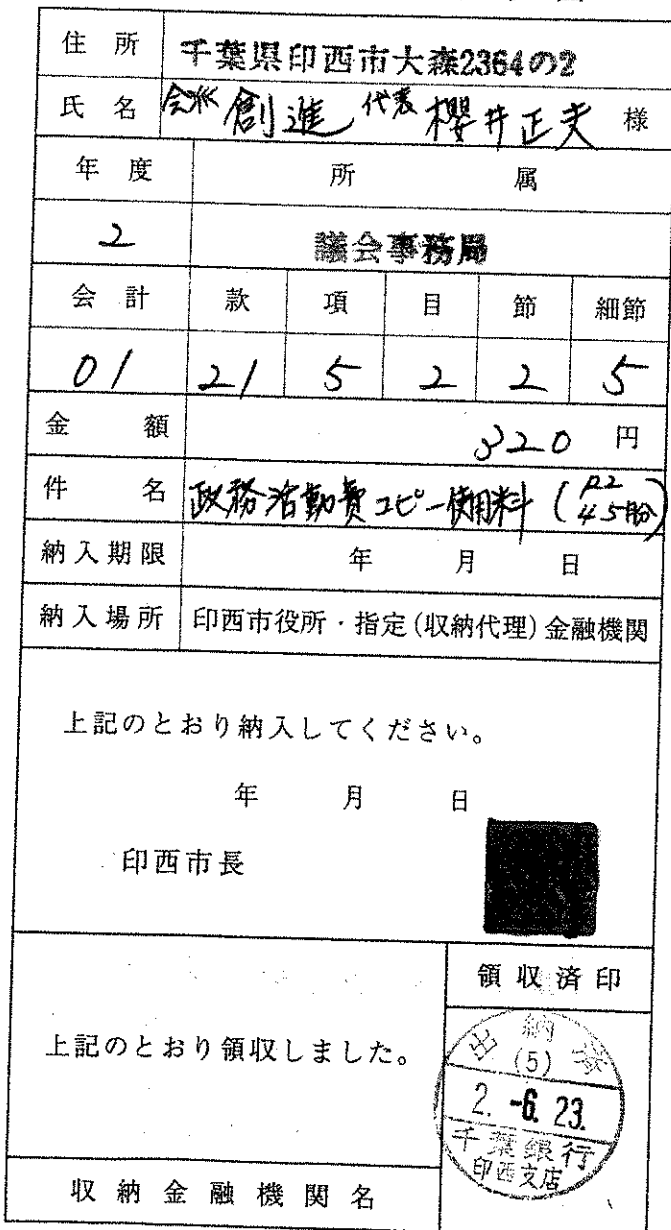 住所 千葉県印西市大森2364の2
氏名 会派 創進 代表 櫻井正夫 様
年度 所属
2 議会事務局
会計 款 項 目 節 細節
01 21 5 2 2 5
金額 320 円
件名 政務活動費コピー使用料 (R2 4.5月分)
納入期限 年 月 日
納入場所 印西市役所・指定(収納代理)金融機関
上記のとおり納入してください。
年 月 日
印西市長
領収済印
上記のとおり領収しました。
出納
(5)
2.-6.23.
千葉銀行
印西支店
収納金融機関名